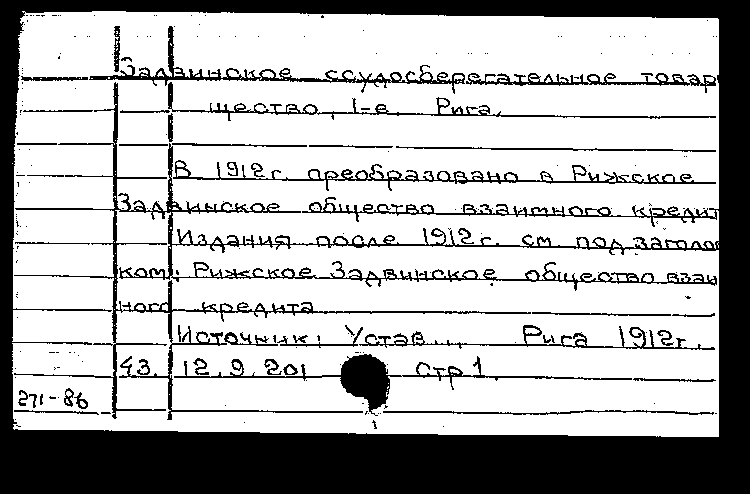 Задвинское ссудосберегательное товар
щество, I-е. Рига.
В 1912г. преобразовано в Рижское
Задвинское общество взаимного кредит
Издания после 1912г. см. под заголов
ком: Рижское Задвинское общество взаи
ного кредита
Источник: Устав... Рига 1912г.
43. 12.9.201 Стр 1.
271-86